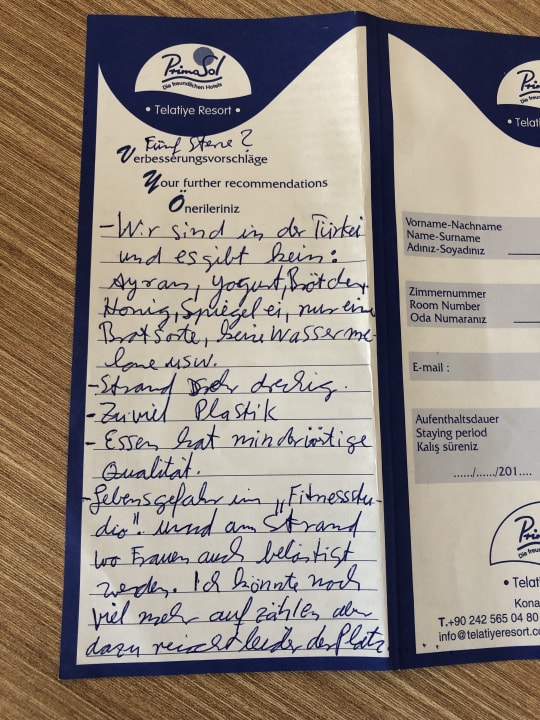 PrimaSol
Die freundlichen Hotels
• Telatiye Resort •
Fünf Sterne?
Verbesserungsvorschläge
Your further recommendations
Önerileriniz
- Wir sind in der Türkei
und es gibt kein:
Ayran, Yogurt, Brötchen,
Honig, Spiegelei, nur eine
Brotsorte, keine Wasserme-
lone usw.
- Strand sehr dreckig.
- Zuviel Plastik
- Essen hat minderwärtige
Qualität.
- Lebensgefahr im "Fitnessstu-
dio". und am Strand
wo Frauen auch belästigt
werden. Ich könnte noch
viel mehr aufzählen aber
dazu reicht leider der Platz
Vorname-Nachname
Name-Surname
Adınız-Soyadınız
Zimmernummer
Room Number
Oda Numaranız
E-mail :
Aufenthaltsdauer
Staying period
Kalış süreniz
....../....../201....
Kona
T.+90 242 565 04 80
info@telatiyeresort.co